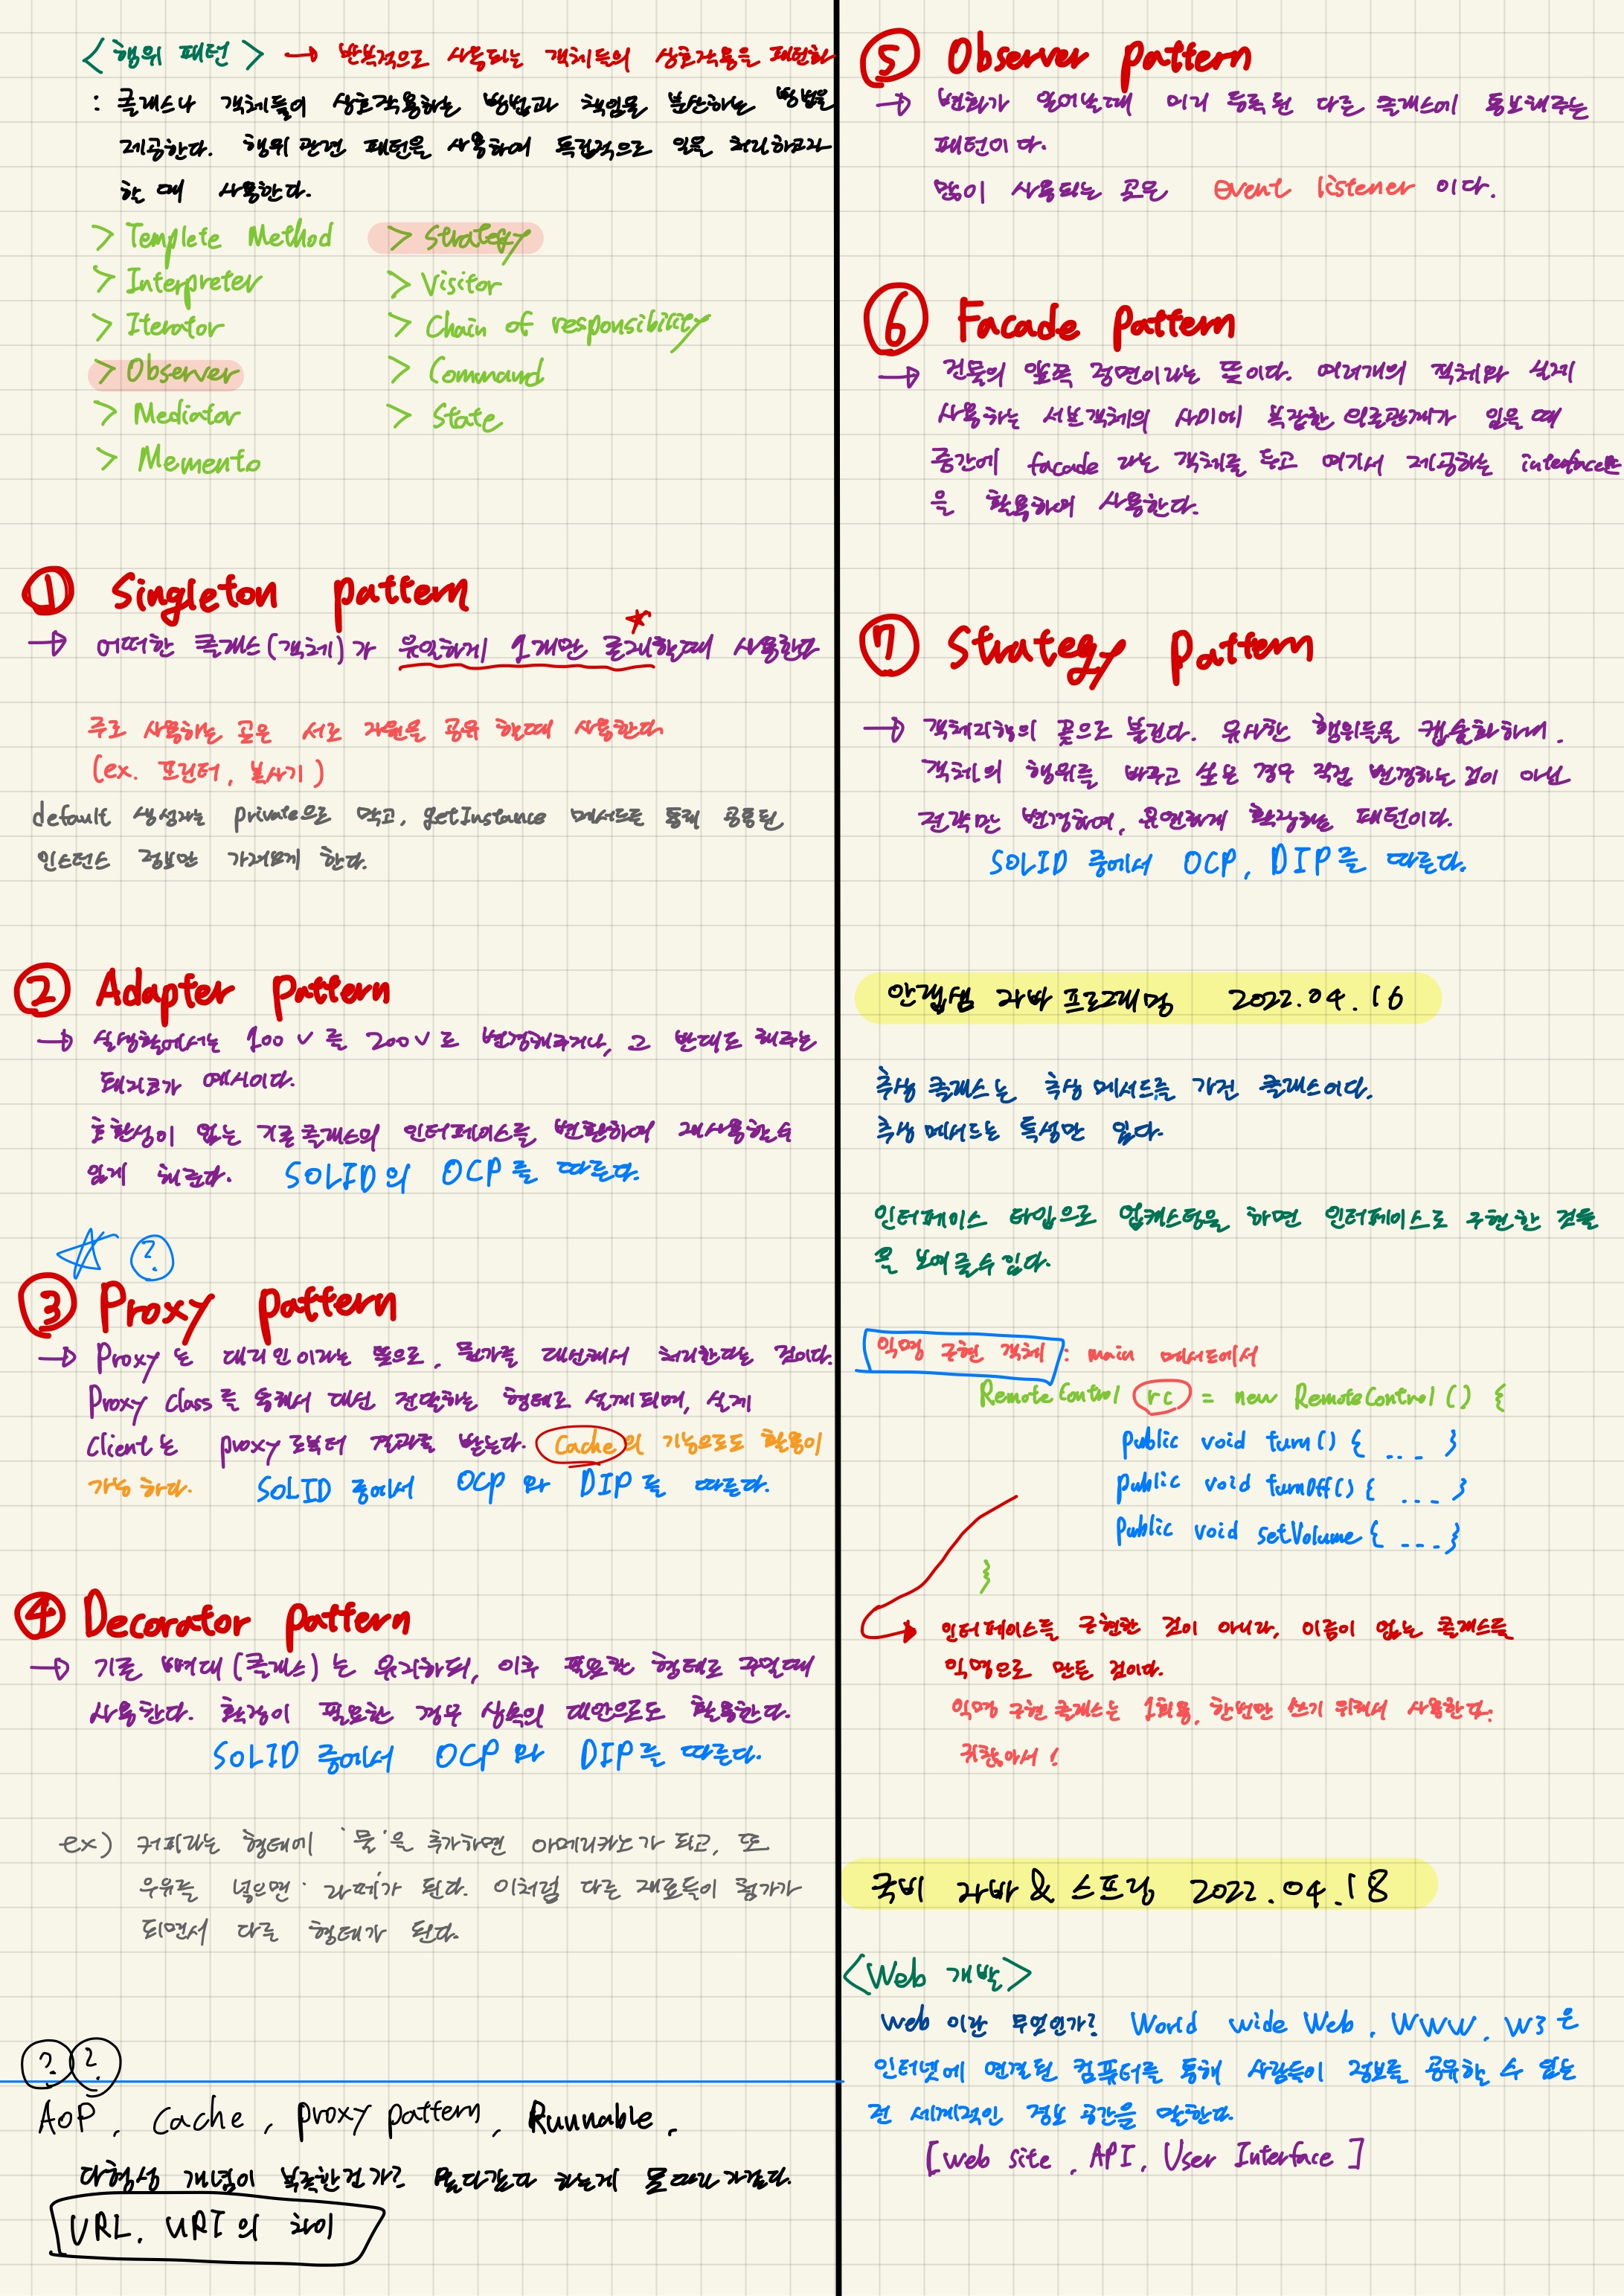 <행위 패턴> → 반복적으로 사용되는 객체들의 상호작용을 패턴화
: 클래스나 객체들이 상호작용하는 방법과 책임을 분산하는 방법을
제공한다. 행위 관련 패턴을 사용하여 독립적으로 일을 처리하고자
할 때 사용한다.
> Templete Method
> Interpreter
> Iterator
> Observer
> Mediator
> Memento
> Strategy
> Visitor
> Chain of responsibility
> Command
> State
① Singleton pattern
→ 어떠한 클래스(객체)가 유일하게 1개만 존재할때 사용한다
주로 사용하는 곳은 서로 자원을 공유 할때 사용한다
(ex. 프린터, 복사기)
default 생성자는 private으로 막고, getInstance 메서드를 통해 공용된
인스턴스 정보만 가져오게 한다.
② Adapter pattern
→ 실생활에서는 100V를 200V로 변경해주거나, 그 반대로 해주는
돼지코가 예시이다.
호환성이 없는 기존클래스의 인터페이스를 변환하여 재사용할수
있게 해준다. SOLID의 OCP를 따른다.
☆ ?
③ Proxy pattern
→ Proxy는 대리인이라는 뜻으로, 뭔가를 대신해서 처리한다는 것이다.
Proxy Class를 통해서 대신 전달하는 형태로 설계되며, 실제
Client는 proxy로부터 결과를 받는다. Cache의 기능으로도 활용이
가능 하다. SOLID 중에서 OCP와 DIP를 따른다.
④ Decorator pattern
→ 기존 뼈대(클래스)는 유지하되, 이후 필요한 형태로 꾸밀때
사용한다. 확장이 필요한 경우 상속의 대안으로도 활용한다.
SOLID 중에서 OCP와 DIP를 따른다.
ex) 커피라는 형태에 '물'을 추가하면 아메리카노가 되고, 또
우유를 넣으면 라떼가 된다. 이처럼 다른 재료들이 첨가가
되면서 다른 형태가 된다.
? ?
AOP, Cache, proxy pattern, Runnable,
다형성 개념이 부족한건가? 왔다갔다 하는게 못따라가겠다.
URL, URI의 차이
⑤ Observer pattern
→ 변화가 일어날때 미리 등록된 다른 클래스에 통보해주는
패턴이다.
많이 사용되는 곳은 event listener 이다.
⑥ Facade pattern
→ 건물의 앞쪽 정면이라는 뜻이다. 여러개의 객체와 실제
사용하는 서브객체의 사이에 복잡한 의존관계가 있을 때
중간에 facade 라는 객체를 두고 여기서 제공하는 interface만
을 활용하여 사용한다.
⑦ Strategy Pattern
→ 객체지향의 꽃으로 불린다. 유사한 행위들을 캡슐화하여.
객체의 행위를 바꾸고 싶은 경우 직접 변경하는 것이 아닌
전략만 변경하여, 유연하게 확장하는 패턴이다.
SOLID 중에서 OCP, DIP를 따른다.
안랩샘 자바 프로그래밍 2022.04.16
추상 클래스는 추상 메서드를 가진 클래스이다.
추상 메서드는 특성만 있다.
인터페이스 타입으로 업캐스팅을 하면 인터페이스로 구현한 것들
을 보여줄수있다.
익명 구현 객체 : main 메서드에서
RemoteControl rc = new RemoteControl () {
public void turn() { ... }
public void turnOff() { .... }
public void setVolume { .... }
}
→ 인터페이스를 구현한 것이 아니라, 이름이 없는 클래스를
익명으로 만든 것이다.
익명 구현 클래스는 1회용, 한번만 쓰기 위해서 사용한다.
귀찮아서!
국비 자바 & 스프링 2022.04.18
<Web 개발>
web 이란 무엇인가? World wide Web, WWW, W3은
인터넷에 연결된 컴퓨터를 통해 사람들이 정보를 공유할 수 있는
전 세계적인 정보 공간을 말한다.
[web site, API, User Interface]